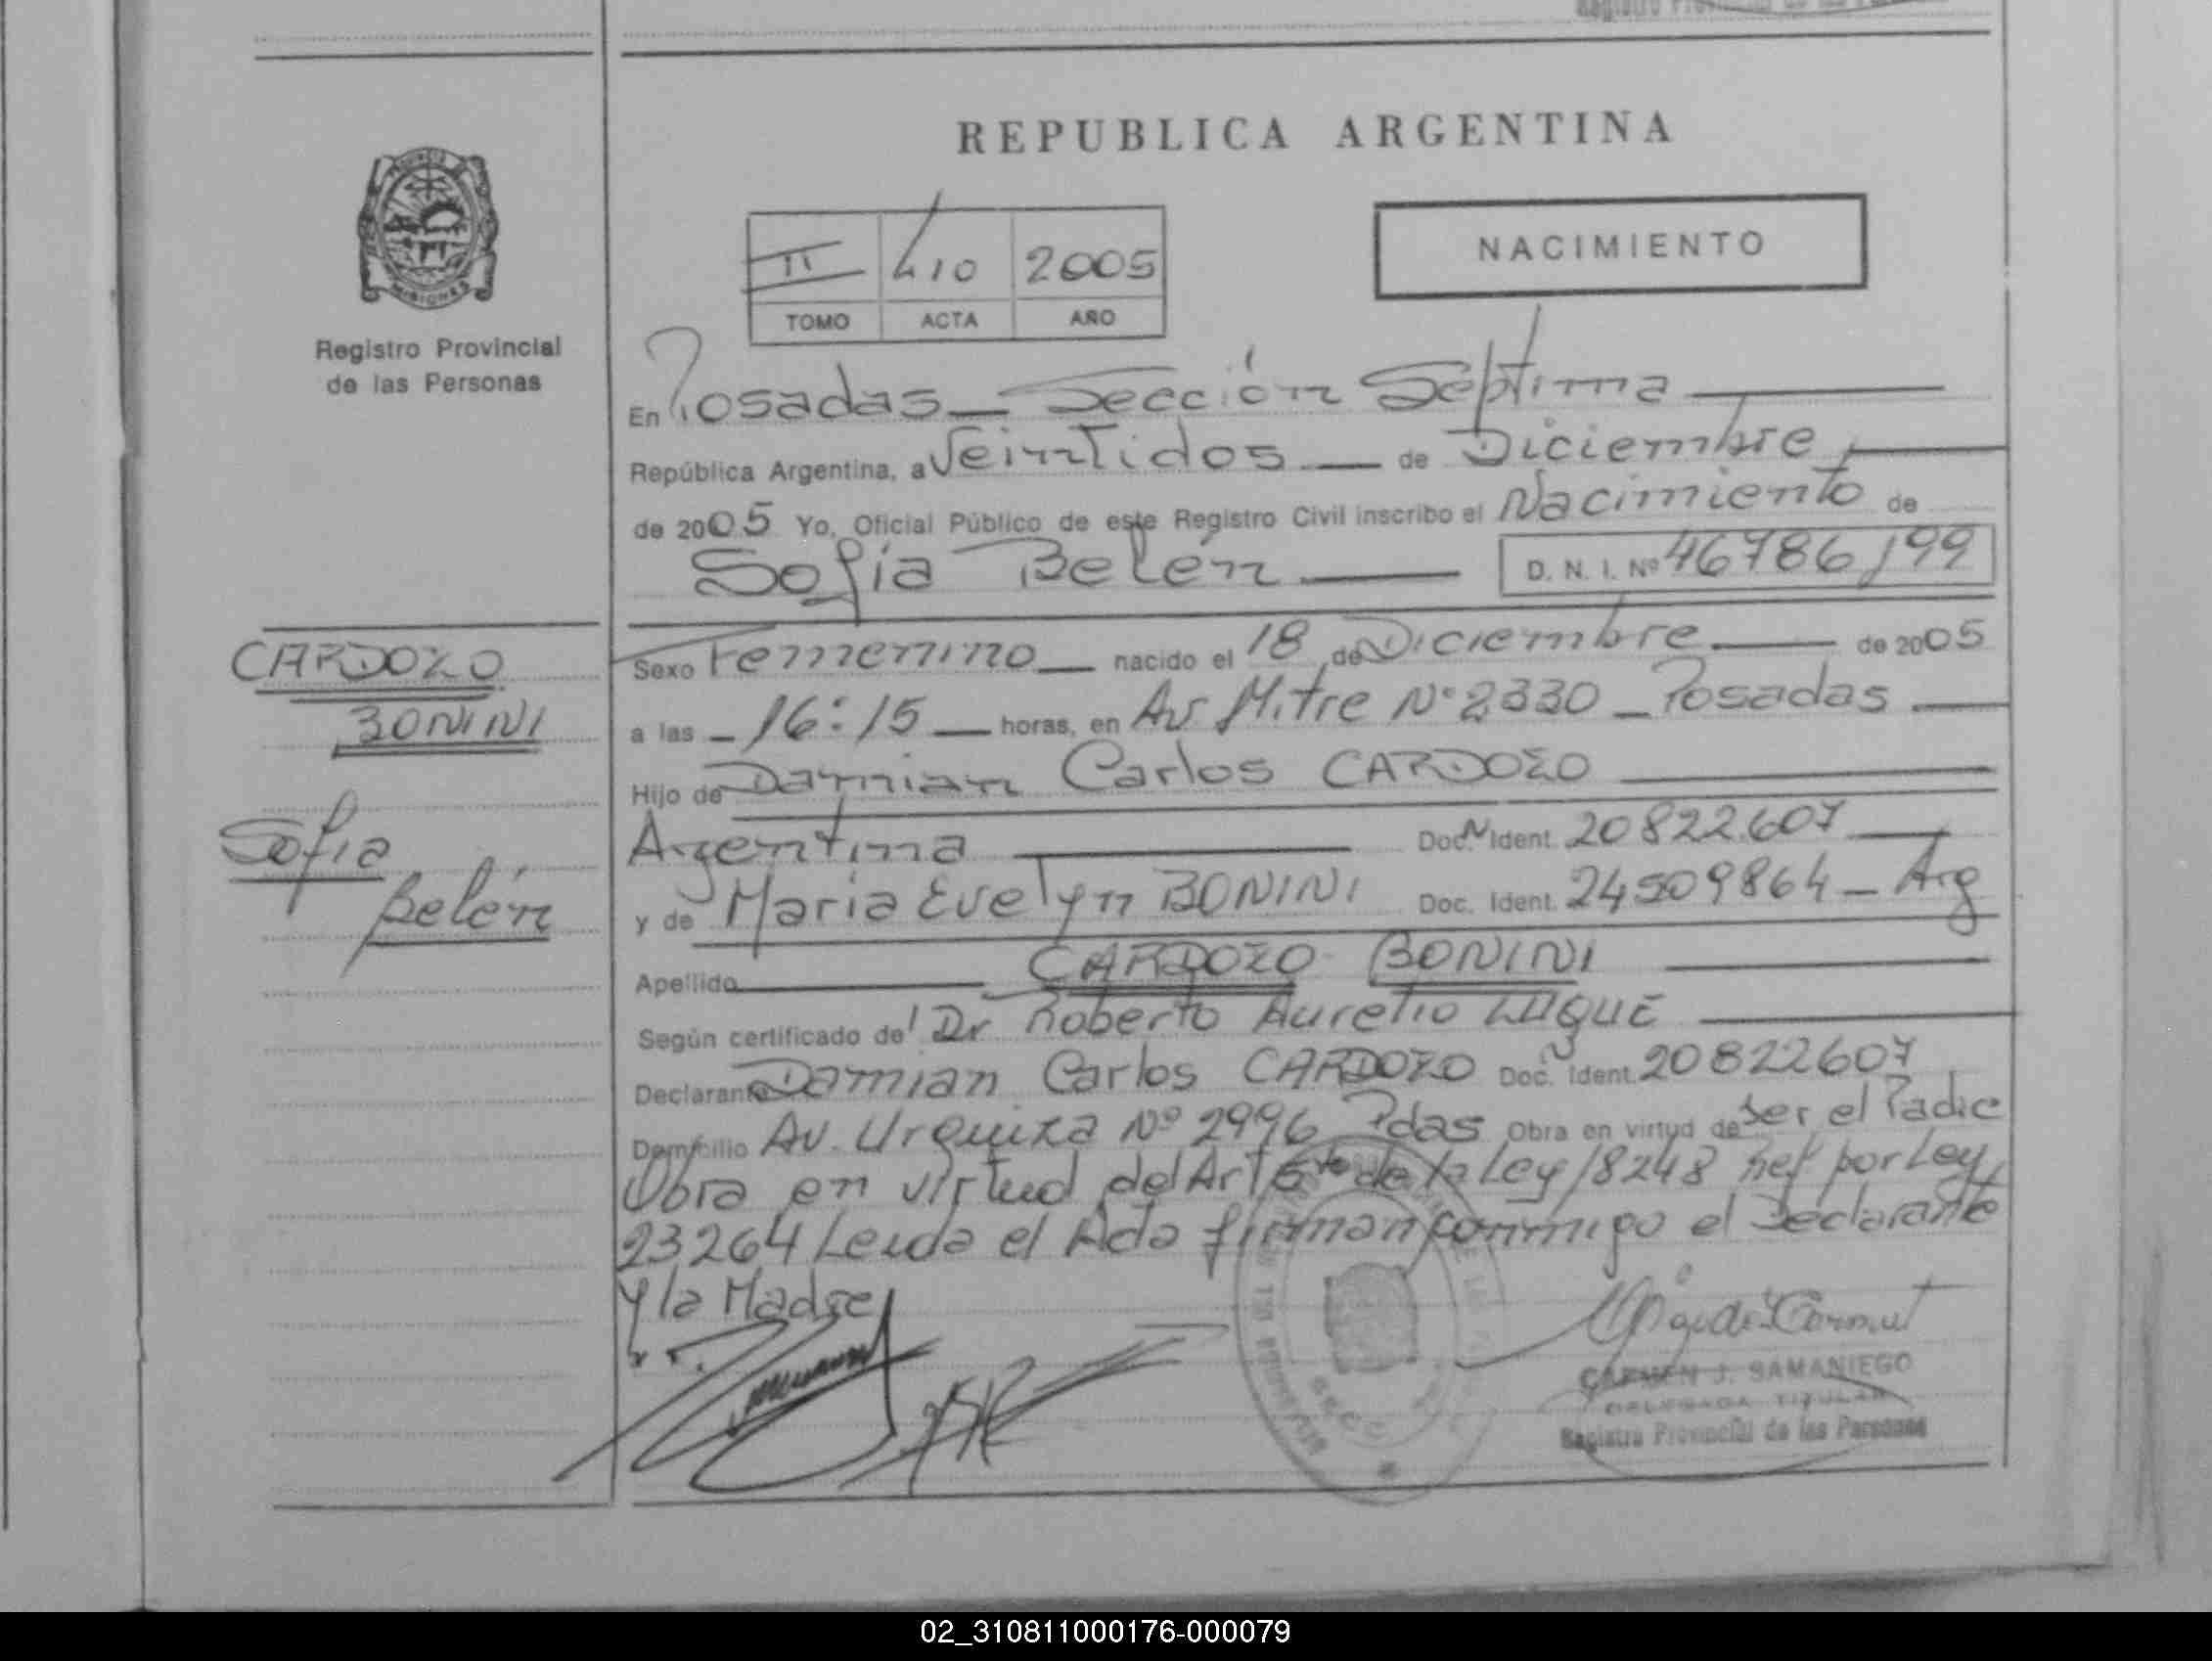 REPUBLICA ARGENTINA
NACIMIENTO
II 410 2005
TOMO ACTA AÑO
MISIONES
Registro Provincial
de las Personas
En Posadas - Sección Séptima
República Argentina, a Veintidos de Diciembre
de 2005 Yo, Oficial Público de este Registro Civil inscribo el Nacimiento de
Sofía Belén D. N. I. Nº 46786199
CARDOZO
BONINI
Sofía
Belén
Sexo Femenino nacido el 18 de Diciembre de 2005
a las 16:15 horas, en Av Mitre Nº 2330 - Posadas
Hijo de Damian Carlos CARDOZO
Argentina Doc. Ident. 20822607
y de Maria Evelyn BONINI Doc. Ident. 24509864 - Arg
Apellido CARDOZO BONINI
Según certificado del Dr Roberto Aurelio LUQUE
Declarante Damian Carlos CARDOZO Doc. Ident. 20822607
Domicilio Av. Urquiza Nº 2996 Pdas Obra en virtud de ser el Padre
Obra en virtud del Art de la Ley 18248 Ref por Ley
23264 Leida el Acta firman conmigo el Declarante
y la Madre
CARMEN J. SAMANIEGO
DELEGADA TITULAR
Registro Provincial de las Personas
02_310811000176-000079